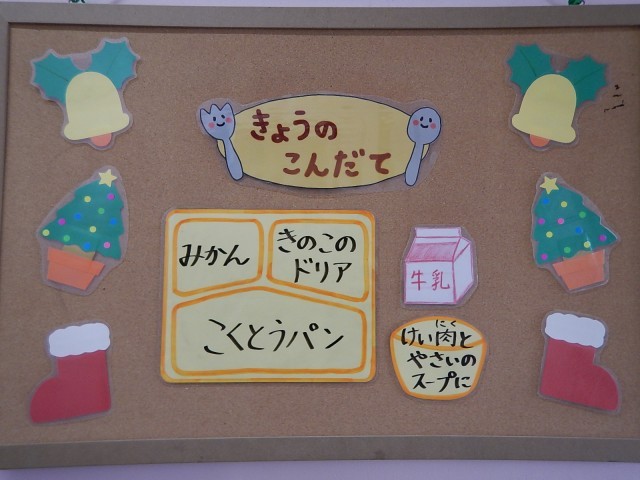 きょうの
こんだて
みかん
きのこの
ドリア
こくとうパン
牛乳
にく
けい肉と
やさいの
スープに